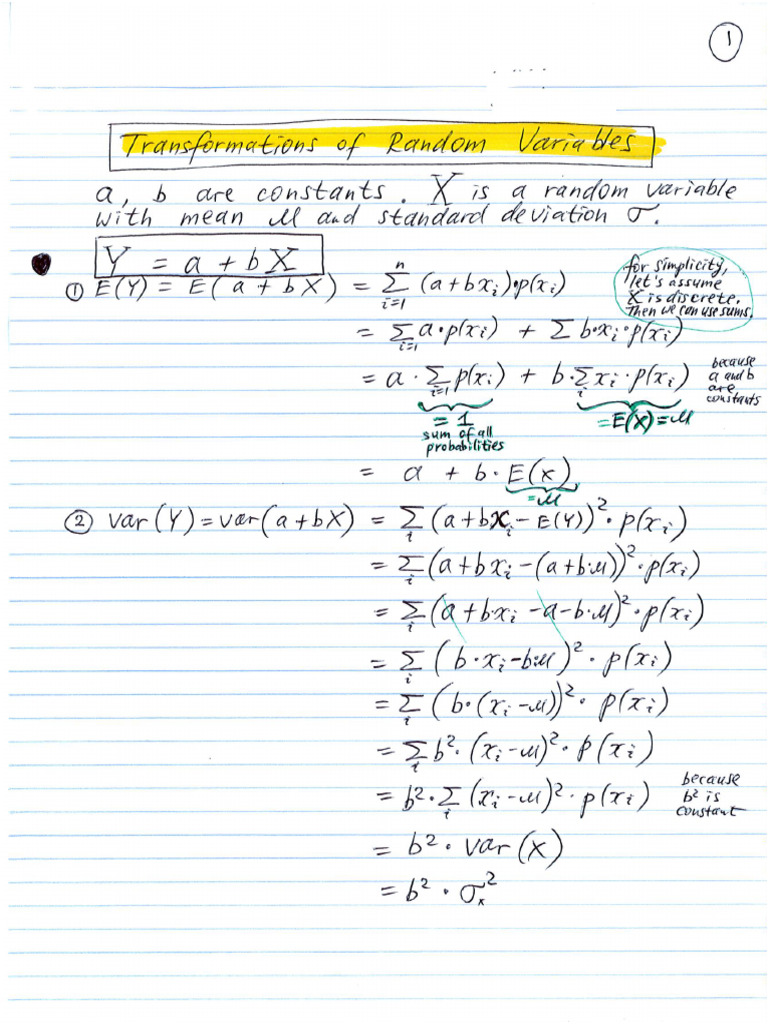 1
Transformations of Random Variables
a, b are constants. X is a random variable
with mean μ and standard deviation σ.
Y = a + bX
for simplicity,
let's assume
X is discrete.
Then we can use sums.
① E(Y) = E(a + bX) = Σⁿᵢ₌₁ (a + bxᵢ)·p(xᵢ)
= Σᵢ₌₁ a·p(xᵢ) + Σ b·xᵢ·p(xᵢ)
= a · Σᵢ₌₁ p(xᵢ) + b·Σᵢ xᵢ·p(xᵢ)
because
a and b
are
constants
= 1
sum of all
probabilities
= E(X) = μ
= a + b · E(x)
= μ
② var(Y) = var(a + bX) = Σᵢ (a + bxᵢ − E(Y))² · p(xᵢ)
= Σᵢ (a + bxᵢ − (a + b·μ))² · p(xᵢ)
= Σᵢ (a + b·xᵢ − a − b·μ)² · p(xᵢ)
= Σᵢ (b·xᵢ − b·μ)² · p(xᵢ)
= Σᵢ (b·(xᵢ − μ))² · p(xᵢ)
= Σᵢ b² · (xᵢ − μ)² · p(xᵢ)
= b² · Σᵢ (xᵢ − μ)² · p(xᵢ)
because
b² is
constant
= b² · var(X)
= b² · σₓ²